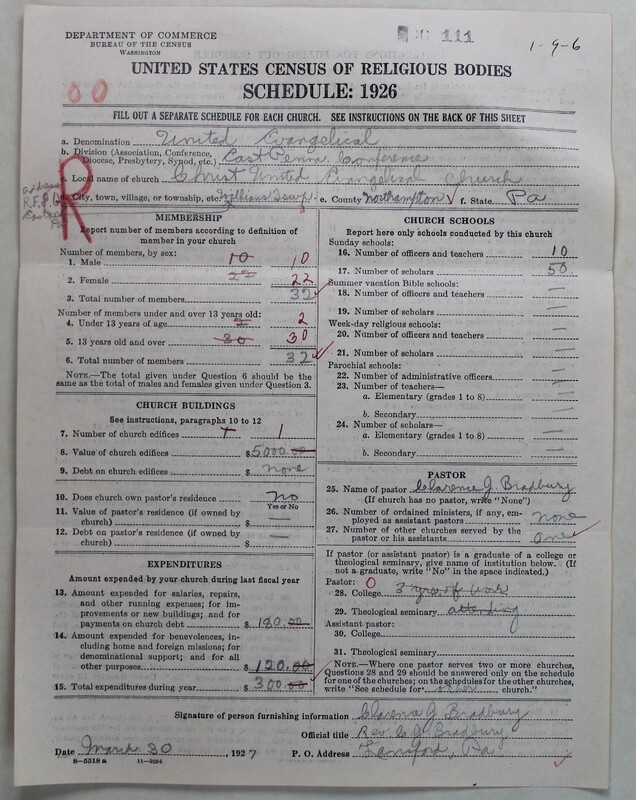 DEPARTMENT OF COMMERCE
BUREAU OF THE CENSUS
WASHINGTON
111
1-9-6
UNITED STATES CENSUS OF RELIGIOUS BODIES
SCHEDULE: 1926
00
FILL OUT A SEPARATE SCHEDULE FOR EACH CHURCH. SEE INSTRUCTIONS ON THE BACK OF THIS SHEET
a. Denomination United Evangelical
b. Division (Association, Conference, Diocese, Presbytery, Synod, etc.) East Penna. Conference
c. Local name of church Christ United Evangelical Church
d. City, town, village, or township, etc. Williams Twp. e. County Northampton f. State Pa
R
address
R.F.D.
MEMBERSHIP
Report number of members according to definition of member in your church
Number of members, by sex:
1. Male 10 10
2. Female 22 22
3. Total number of members 32
Number of members under and over 13 years old:
4. Under 13 years of age 2 2
5. 13 years old and over 30 30
6. Total number of members 32
NOTE.—The total given under Question 6 should be the same as the total of males and females given under Question 3.
CHURCH BUILDINGS
See instructions, paragraphs 10 to 12
7. Number of church edifices 1 1
8. Value of church edifices $ 5000.00
9. Debt on church edifices $ none
10. Does church own pastor's residence No
Yes or No
11. Value of pastor's residence (if owned by church) $ —
12. Debt on pastor's residence (if owned by church) $ —
EXPENDITURES
Amount expended by your church during last fiscal year
13. Amount expended for salaries, repairs, and other running expenses; for improvements or new buildings; and for payments on church debt $ 180.00
14. Amount expended for benevolences, including home and foreign missions; for denominational support; and for all other purposes $ 120.00
15. Total expenditures during year $ 300.00
CHURCH SCHOOLS
Report here only schools conducted by this church
Sunday schools:
16. Number of officers and teachers 10
17. Number of scholars 50
Summer vacation Bible schools:
18. Number of officers and teachers —
19. Number of scholars —
Week-day religious schools:
20. Number of officers and teachers —
21. Number of scholars —
Parochial schools:
22. Number of administrative officers —
23. Number of teachers—
a. Elementary (grades 1 to 8) —
b. Secondary —
24. Number of scholars—
a. Elementary (grades 1 to 8) —
b. Secondary —
PASTOR
25. Name of pastor Clarence G. Bradbury
(If church has no pastor, write "None")
26. Number of ordained ministers, if any, employed as assistant pastors none
27. Number of other churches served by the pastor or his assistants one
If pastor (or assistant pastor) is a graduate of a college or theological seminary, give name of institution below. (If not a graduate, write "No" in the space indicated.)
Pastor: O
28. College 3 yrs of work
29. Theological seminary attending
Assistant pastor:
30. College
31. Theological seminary
NOTE.—Where one pastor serves two or more churches, Questions 28 and 29 should be answered only on the schedule for one of the churches; on the schedules for the other churches, write "See schedule for other church."
Signature of person furnishing information Clarence G. Bradbury
Official title Rev. C. G. Bradbury
Date March 30 1927 P. O. Address Lansford, Pa.
8—5518 a 11—9054